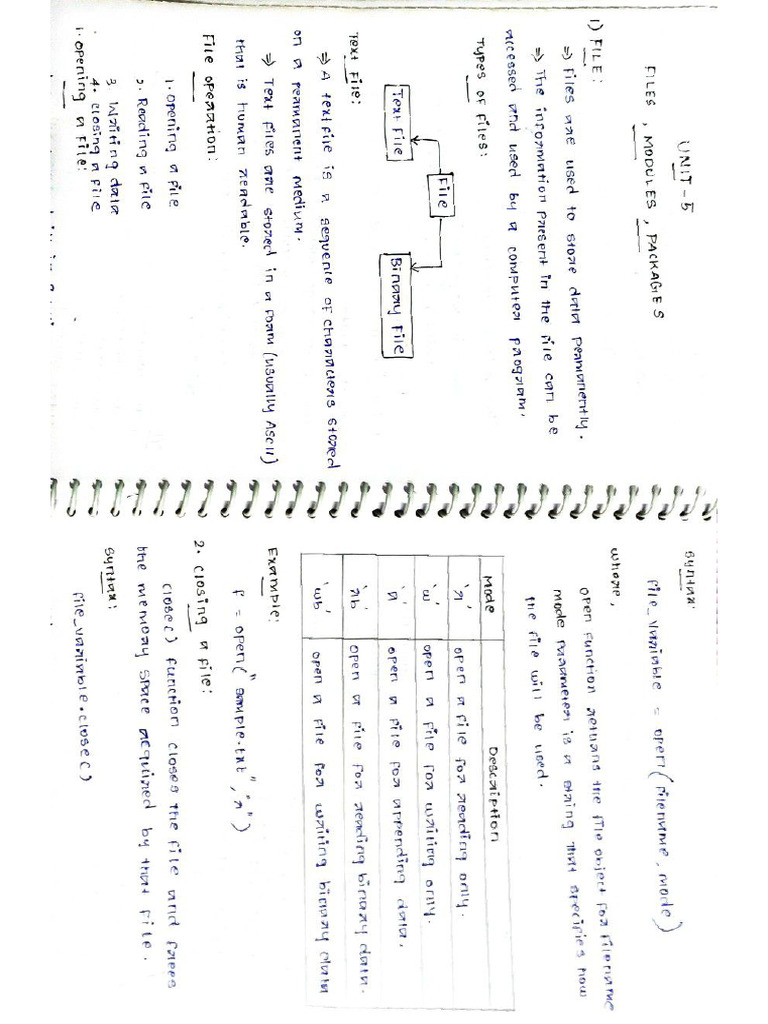 UNIT-5
FILES, MODULES, PACKAGES
1) FILE:
⇒ Files are used to store data permanently.
⇒ The information present in the file can be
accessed and used by a computer program.
Types of Files:
File
Text File
Binary File
Text File:
⇒ A textfile is a sequence of characters stored
on a permanent medium.
⇒ Text files are stored in a form (usually Ascii)
that is human readable.
File operation:
1. opening a file
2. Reading a file
3. Writing data
4. closing a file
1. opening a file:
Syntax:
file_variable = open(filename, mode)
where,
open function returns the file object for filename
mode parameter is a string that specifies how
the file will be used.
Mode Description
'r' open a file for reading only.
'w' open a file for writing only.
'a' open a file for appending data.
'rb' open a file for reading binary data.
'wb' open a file for writing binary data
Example:
f = open("sample.txt", "r")
2. closing a file:
close() function closes the file and frees
the memory space acquired by that file.
Syntax:
file_variable.close()